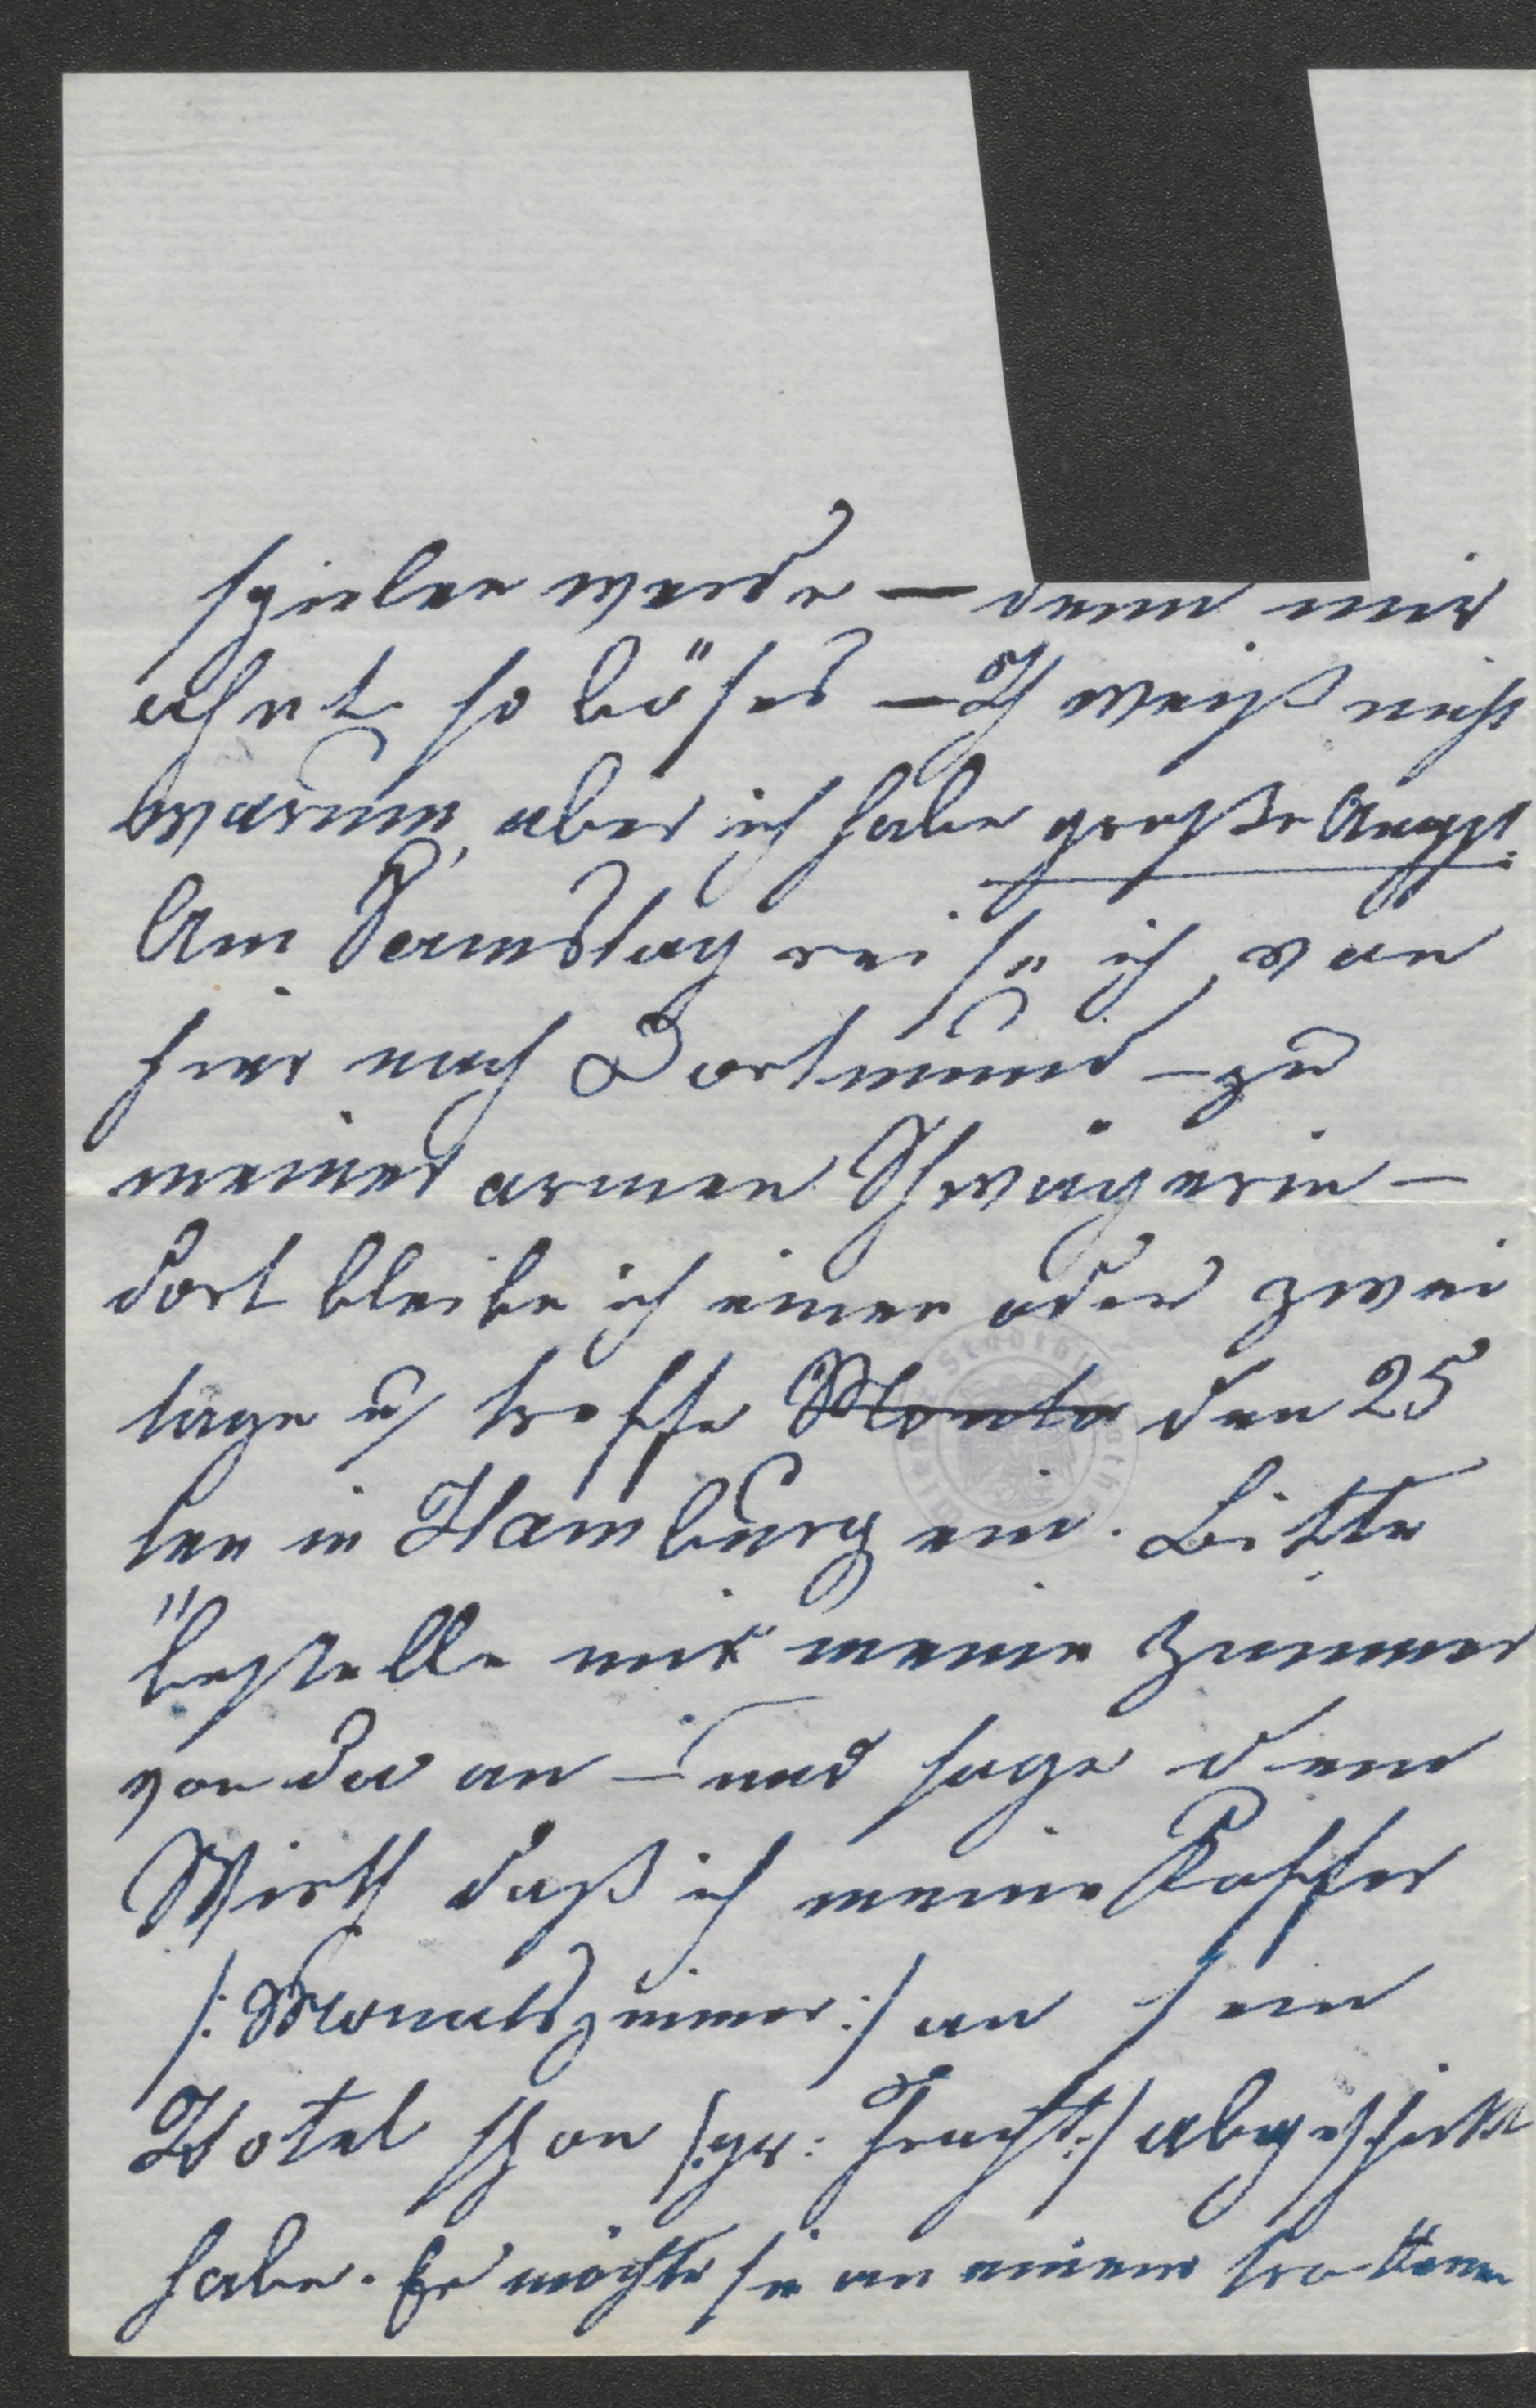 spielen werde — denn mir
ahnt so böses — Ich weiß nicht
warum, aber ich habe große Angst.
Am Samstag reise ich von
hier nach Dortmund — zu
meiner armen Schwägerin —
dort bleibe ich einen oder zwei
tage u. treffe Monta den 25
ten in Hamburg ein. Bitte
bestelle mir meine Zimmer
von da an — und sage dem
Wirth daß ich meine Koffer
/: Monatszimmer :/ an sein
Hotel schon /: pr: Fracht :/ abgeschickt
habe. Er möchte sie an einem trockenen